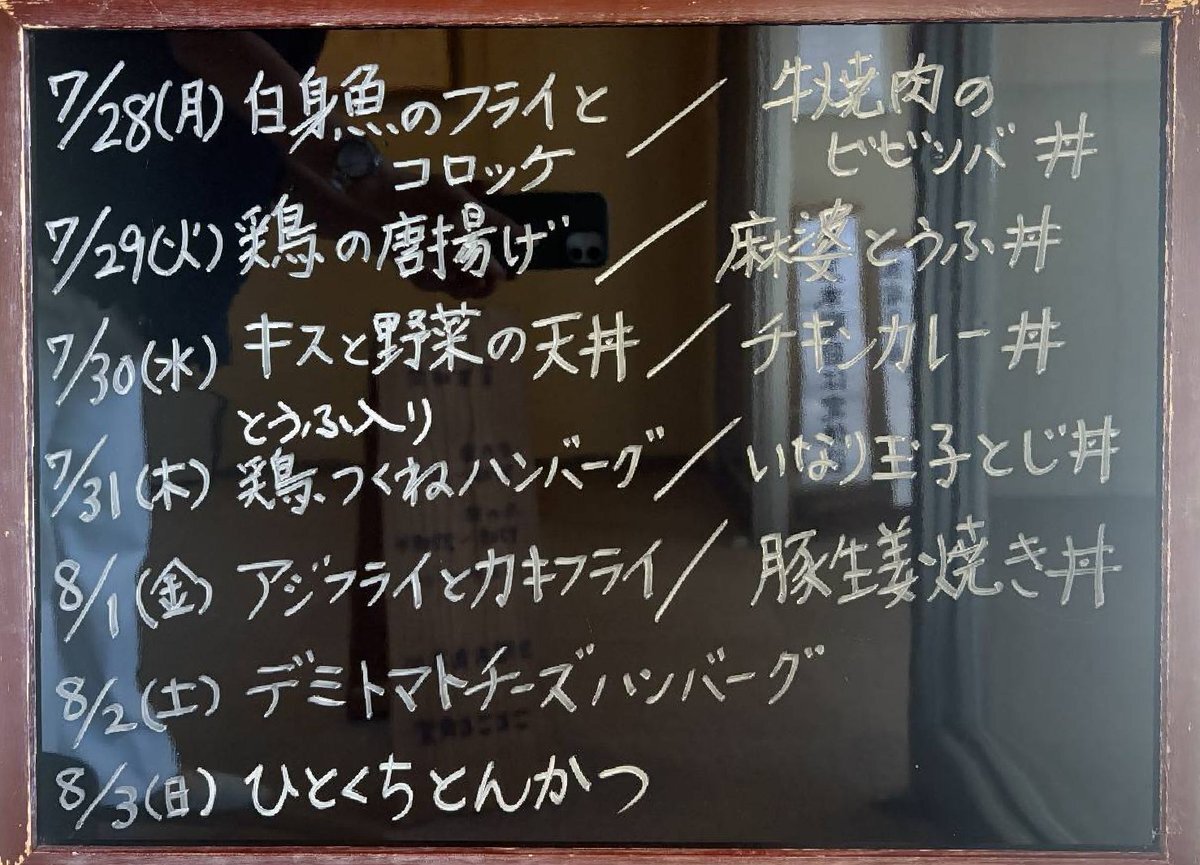 7/28(月) 白身魚のフライと / 牛焼肉の
コロッケ ビビンバ丼
7/29(火) 鶏の唐揚げ / 麻婆とうふ丼
7/30(水) キスと野菜の天丼 / チキンカレー丼
とうふ入り
7/31(木) 鶏つくねハンバーグ / いなり玉子とじ丼
8/1(金) アジフライとカキフライ / 豚生姜焼き丼
8/2(土) デミトマトチーズハンバーグ
8/3(日) ひとくちとんかつ